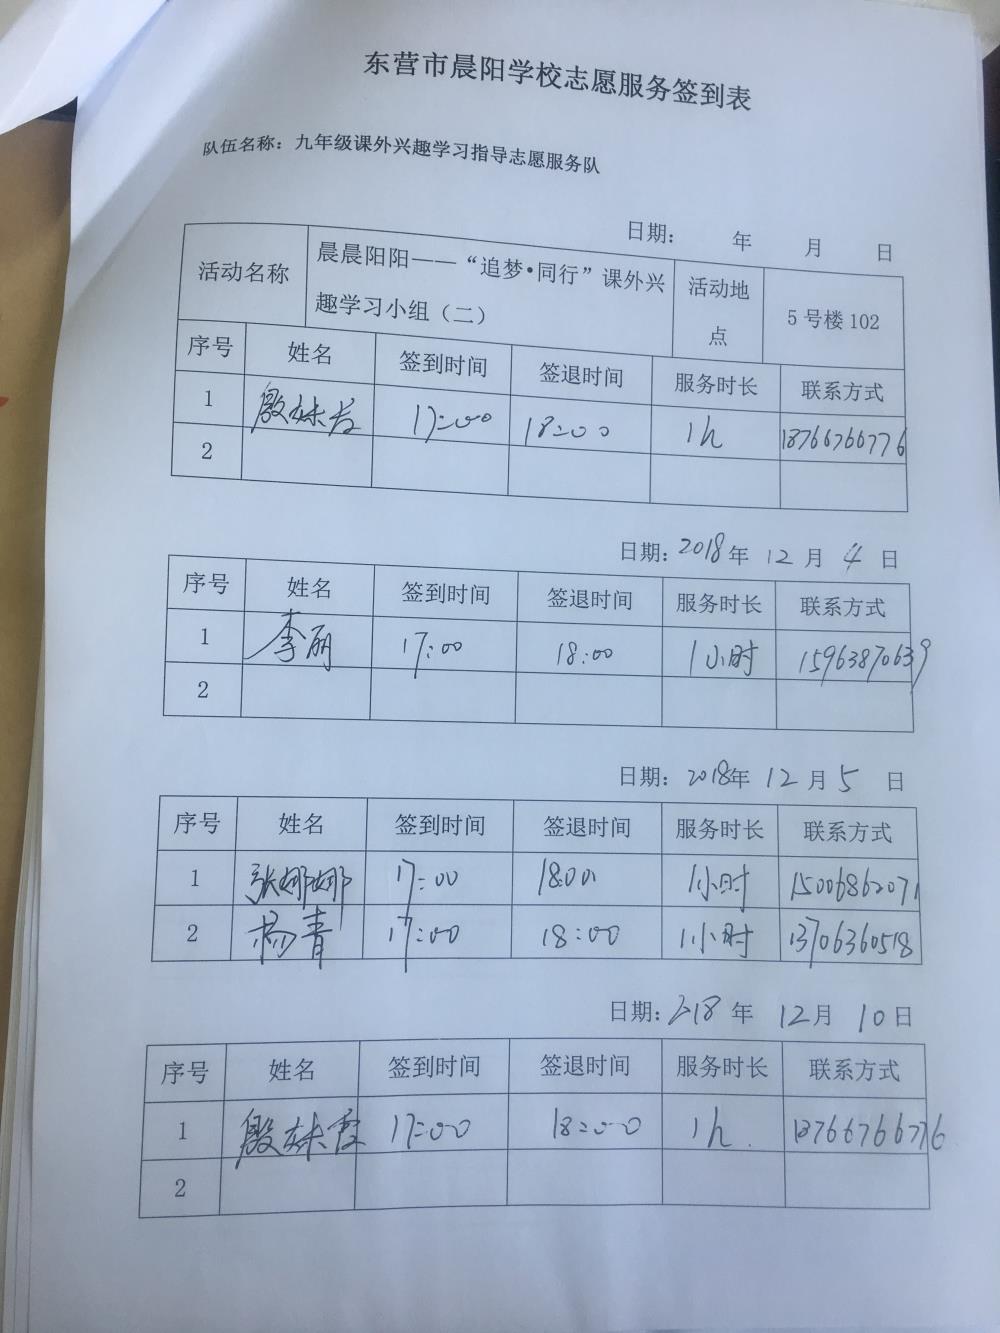 东营市晨阳学校志愿服务签到表
队伍名称：九年级课外兴趣学习指导志愿服务队
日期： 年 月 日
活动名称 晨晨阳阳——“追梦•同行”课外兴趣学习小组（二） 活动地点 5号楼102
序号 姓名 签到时间 签退时间 服务时长 联系方式
1 17:00 18:00 1h 18766766776
2
日期：2018年 12月 4日
序号 姓名 签到时间 签退时间 服务时长 联系方式
1 李丽 17:00 18:00 1小时 15963870639
2
日期：2018年 12月 5日
序号 姓名 签到时间 签退时间 服务时长 联系方式
1 张娜娜 17:00 18:00 1小时 15006862071
2 杨青 17:00 18:00 1小时 13706360518
日期：2018年 12月 10日
序号 姓名 签到时间 签退时间 服务时长 联系方式
1 17:00 18:00 1h. 18766766776
2